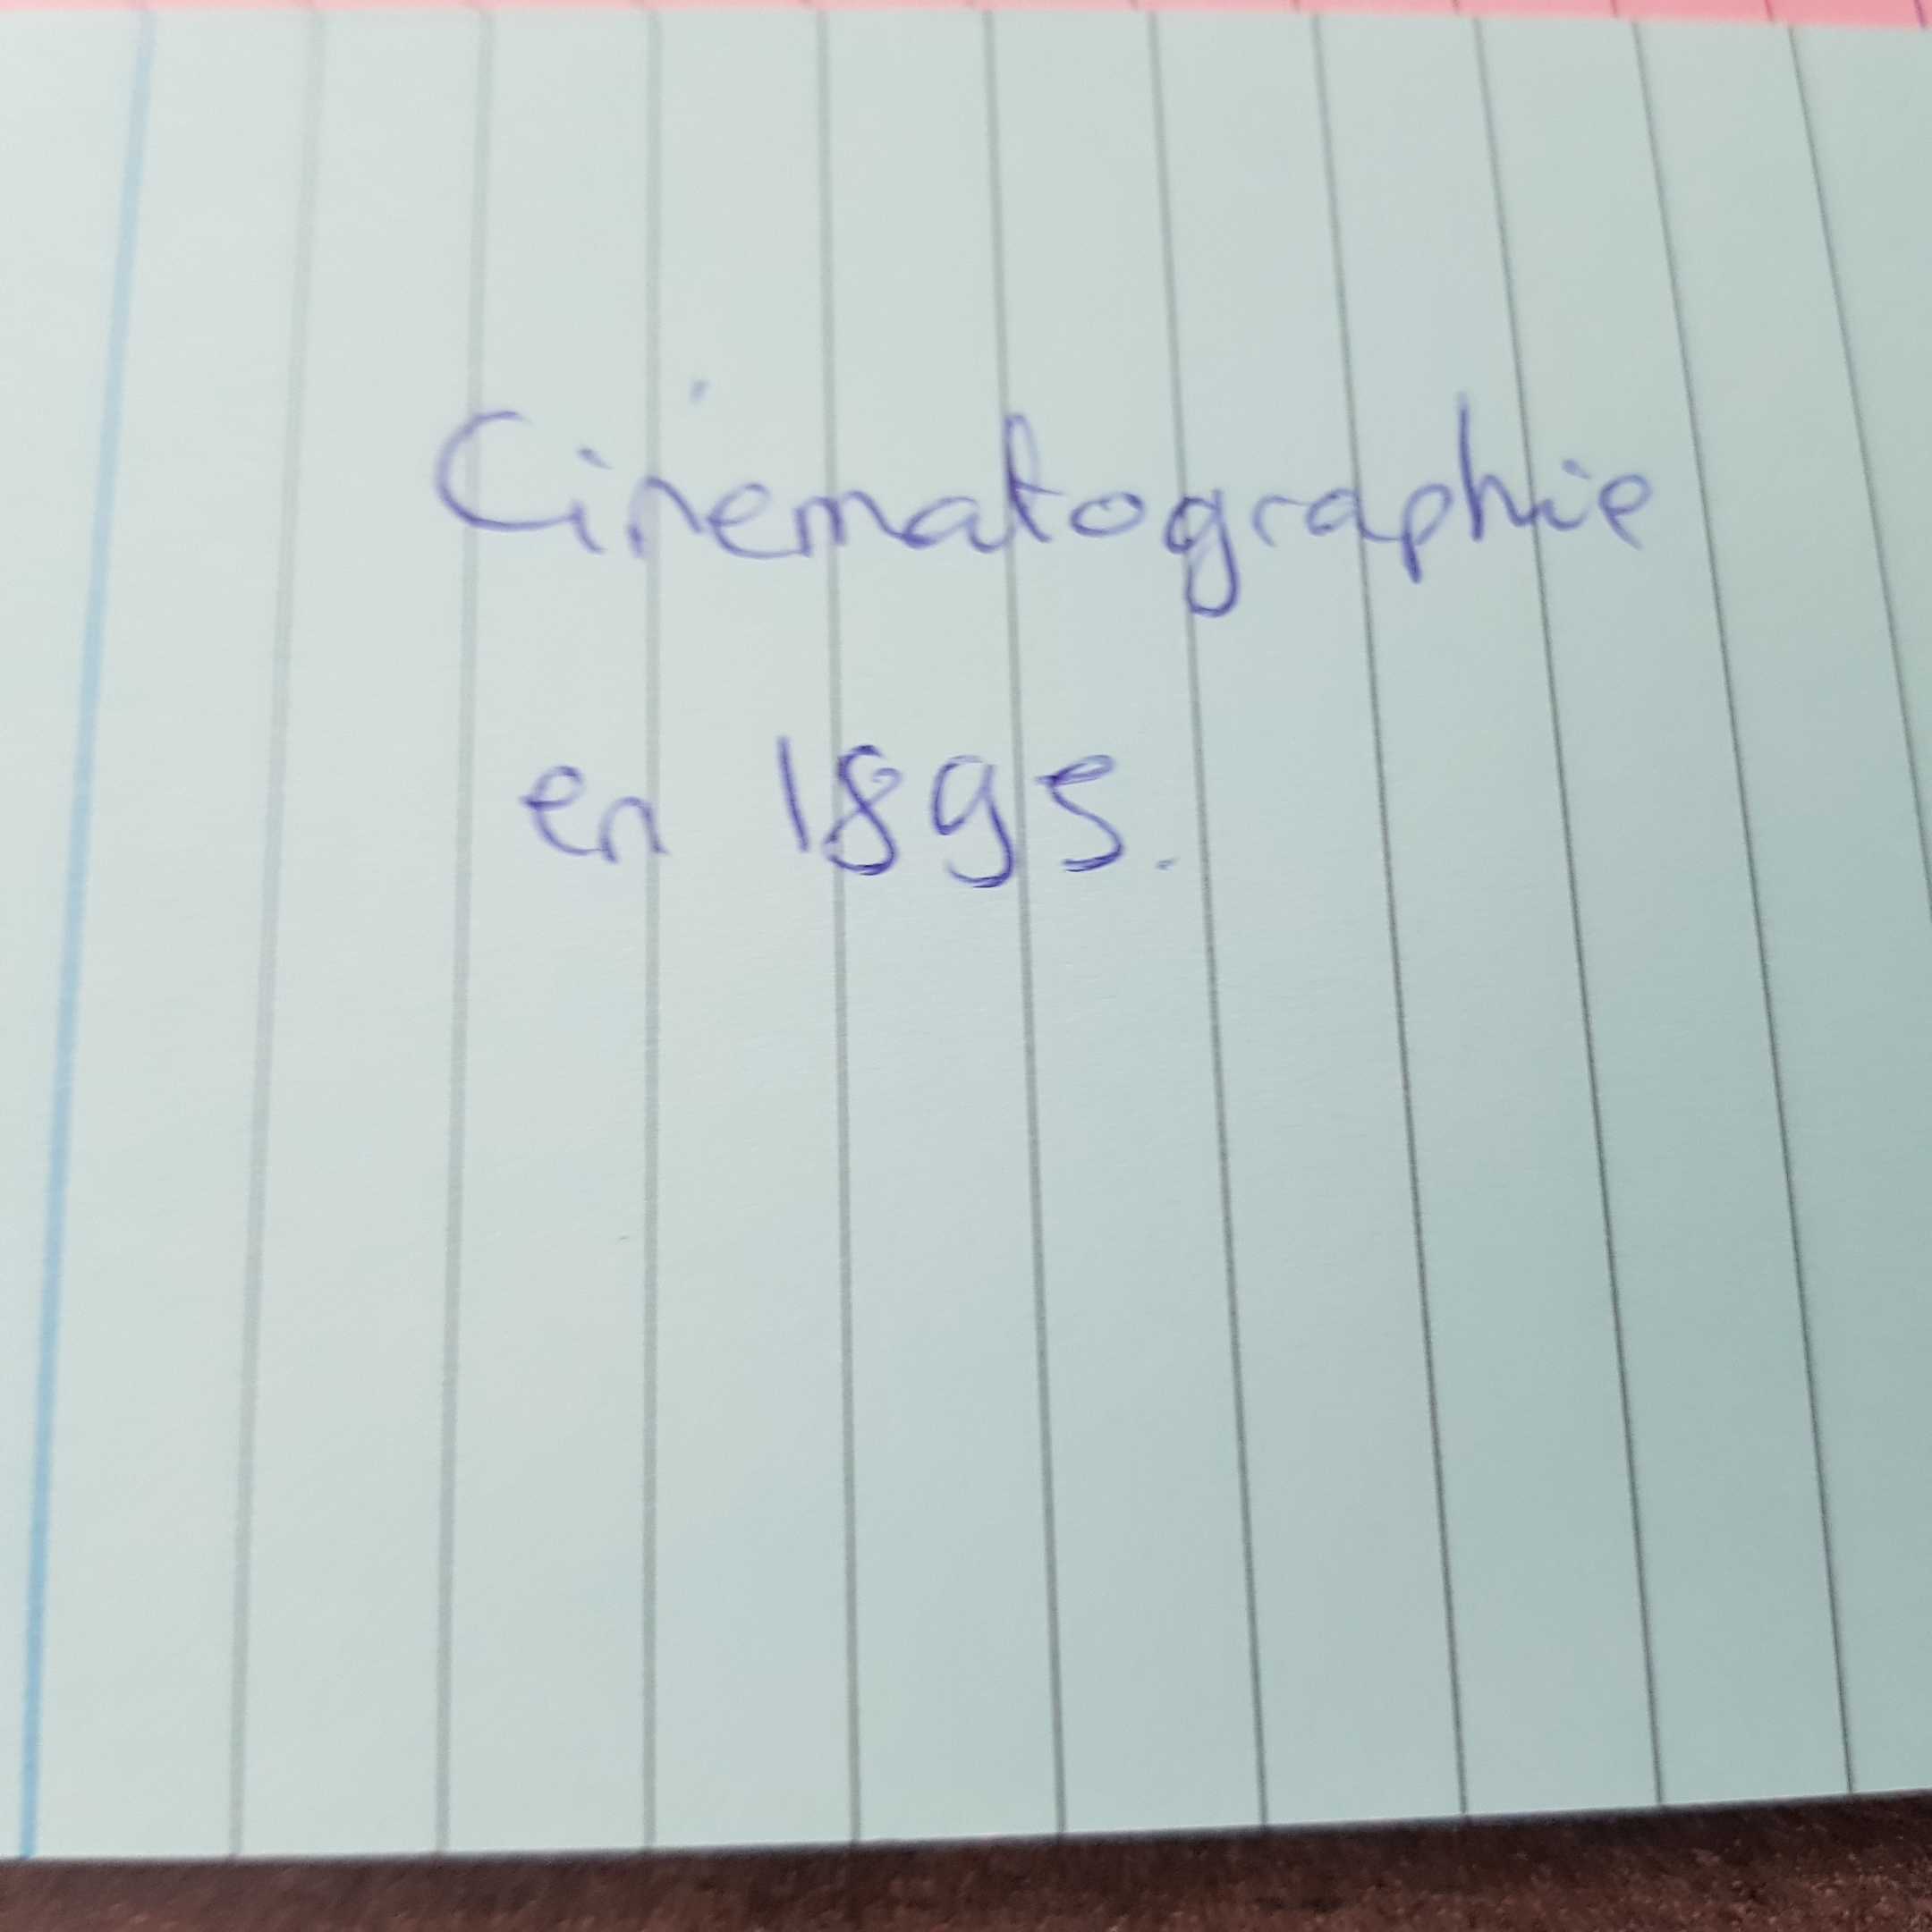 Cinématographie
en 1895.